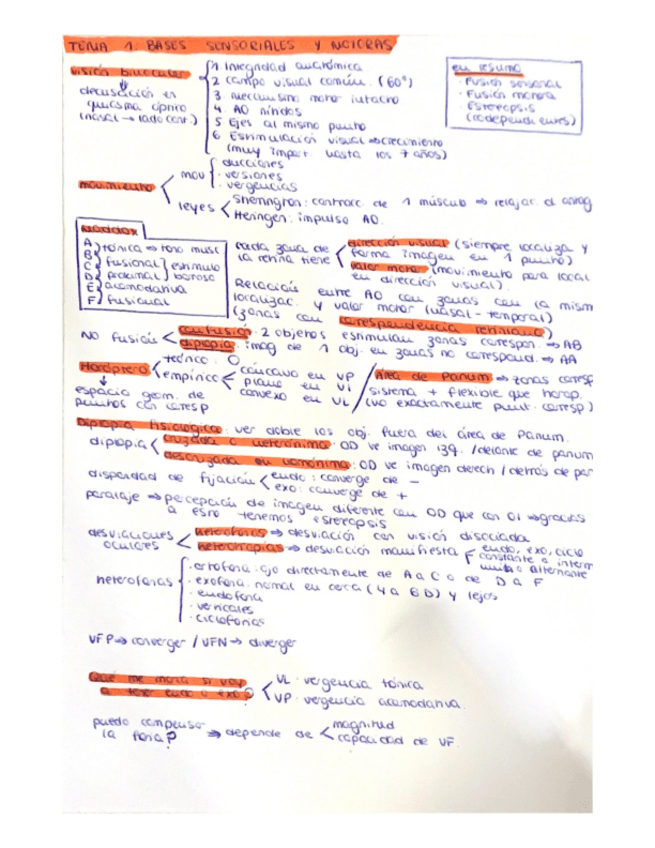 TEMA 1. BASES SENSORIALES Y MOTORAS
visión binocular
decusación en
quiasma óptico
(nasal → lado cont.)
1 Integridad anatómica
2 campo visual común. (60°)
3 mecanismo motor intacto
4. AO nítidos
5 Ejes al mismo punto
6 Estimulación visual ⇒ crecimiento
(muy import hasta los 7 años)
en resumo
· Fusión sensorial
· Fusión motora
· Estereopsis
(codependientes)
movimiento
mov
· ducciones
· versiones
· vergencias
leyes
Sherrington: contracc de 1 músculo ⇒ relajac. el antag
Heringen: impulso AO.
Maddox
A) tónica ⇒ tono musc
B)
C) fusional } estímulo
D) proximal } borroso
E) acomodativa
F) fusional
cada zona de
la retina tiene
dirección visual (siempre localiza y
forma imagen en 1 punto)
valor motor (movimiento para local
en dirección visual).
Relación entre AO con zonas con la mism
localizac. y valor motor (nasal - temporal)
(zonas con correspondencia retiniana)
NO fusión
confusión: 2 objetos estimulan zonas correspon. ⇒ AB
diplopia: imag de 1 obj. en zonas no correspond. ⇒ AA
Horóptero
teórico: O
empírico
cóncavo en VP
plano en VI
convexo en VL
espacio geom. de
puntos con corresp
Área de Panum ⇒ zonas corresp
sistema + flexible que horop.
(no exactamente punt. corresp)
Diplopia fisiológica: ver doble los obj. fuera del área de Panum.
diplopia
cruzada o heterónima: OD ve imagen izq. / delante de panum
descruzada ou homónima: OD ve imagen derech / detrás de pan
disparidad de fijación
endo: converge de –
exo: converge de +
paralaje ⇒ percepción de imagen diferente con OD que con OI ⇒ gracias
a esto tenemos estereopsis
desviaciones
oculares
heteroforias ⇒ desviación con visión disociada
heterotropias ⇒ desviación manifiesta
endo, exo, ciclo
constante o interm
unilat o alternante
heteroforias
· ortoforia: ojo directamente de A a C o de D a F
· exoforia: normal en cerca (4 a 6 D) y lejos
· endoforia
· verticales
· cicloforias
VFP ⇒ converger / VFN ⇒ diverger
Qué me marca si voy
a tener endo o exo?
VL: vergencia tónica
VP: vergencia acomodativa.
puedo compensar
la foria?
⇒ depende de
magnitud
capacidad de VF.